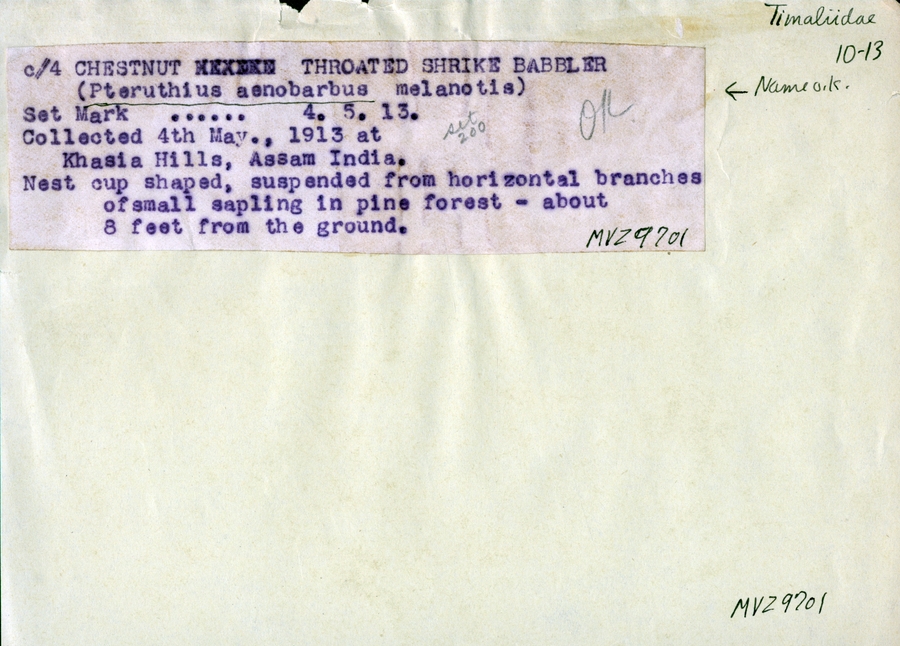 Timaliidae
10-13
← Name o.k.
c/4 CHESTNUT THROATED SHRIKE BABBLER
(Pteruthius aenobarbus melanotis)
Set Mark ...... 4. 5. 13.
set 200
OK.
Collected 4th May., 1913 at
Khasia Hills, Assam India.
Nest cup shaped, suspended from horizontal branches
ofsmall sapling in pine forest - about
8 feet from the ground.
MVZ9701
MVZ9701